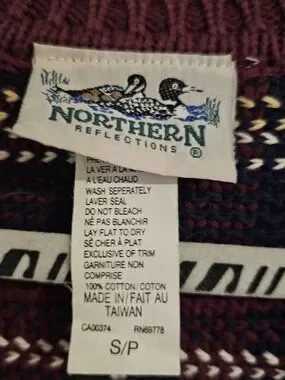 NORTHERN
REFLECTIONS ®
LAVER A LA M
A L'EAU CHAUD
WASH SEPERATELY
LAVER SEAL
DO NOT BLEACH
NE PAS BLANCHIR
LAY FLAT TO DRY
SÉCHER À PLAT
EXCLUSIVE OF TRIM
GARNITURE NON
COMPRISE
100% COTTON/ COTON
MADE IN/FAIT AU
TAIWAN
CA00374 RN69778
S/P